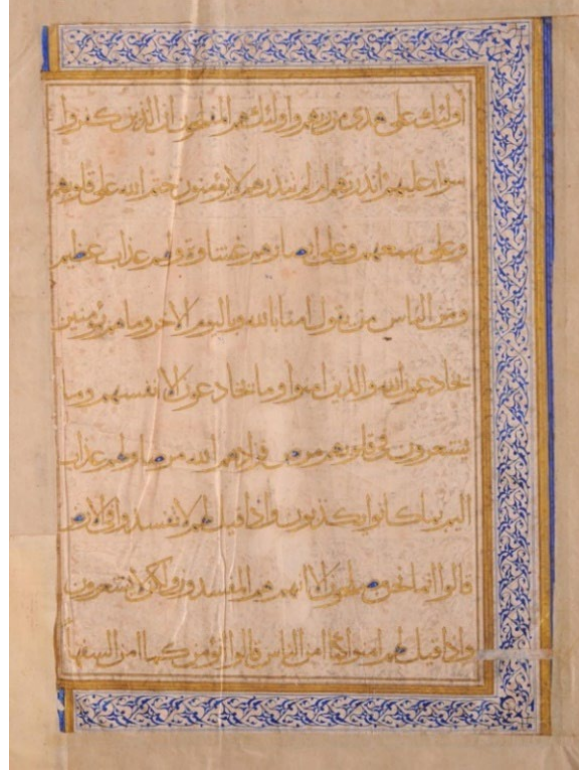 اولئك على هدى من ربهم واولئك هم المفلحون ان الذين كفروا
سواء عليهم ءانذرتهم ام لم تنذرهم لا يؤمنون ختم الله على قلوبهم
وعلى سمعهم وعلى ابصارهم غشاوة ولهم عذاب عظيم
ومن الناس من يقول امنا بالله وباليوم الاخر وما هم بمؤمنين
يخادعون الله والذين امنوا وما يخادعون الا انفسهم وما
يشعرون في قلوبهم مرض فزادهم الله مرضا ولهم عذاب
اليم بما كانوا يكذبون واذا قيل لهم لا تفسدوا في الارض
قالوا انما نحن مصلحون الا انهم هم المفسدون ولكن لا يشعرون
واذا قيل لهم امنوا كما امن الناس قالوا انؤمن كما امن السفهاء